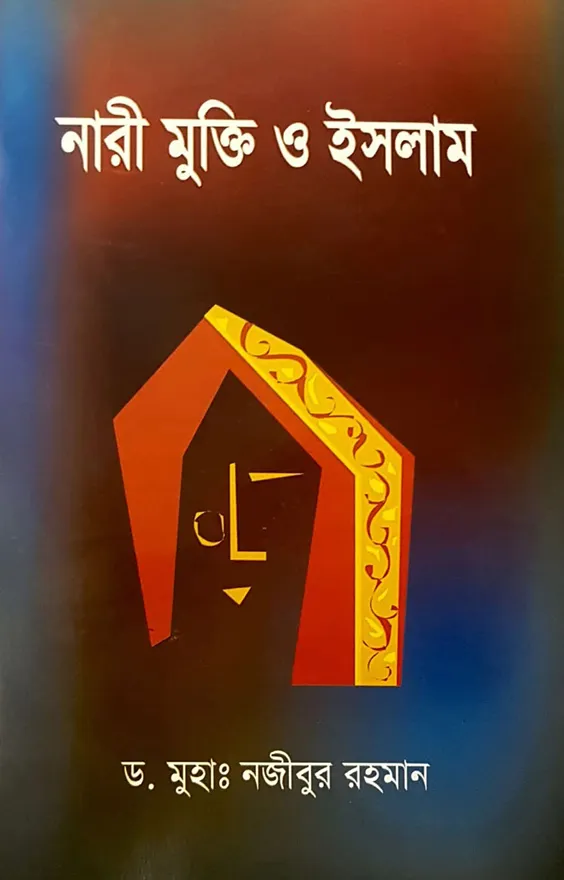 নারী মুক্তি ও ইসলাম
ড. মুহাঃ নজীবুর রহমান